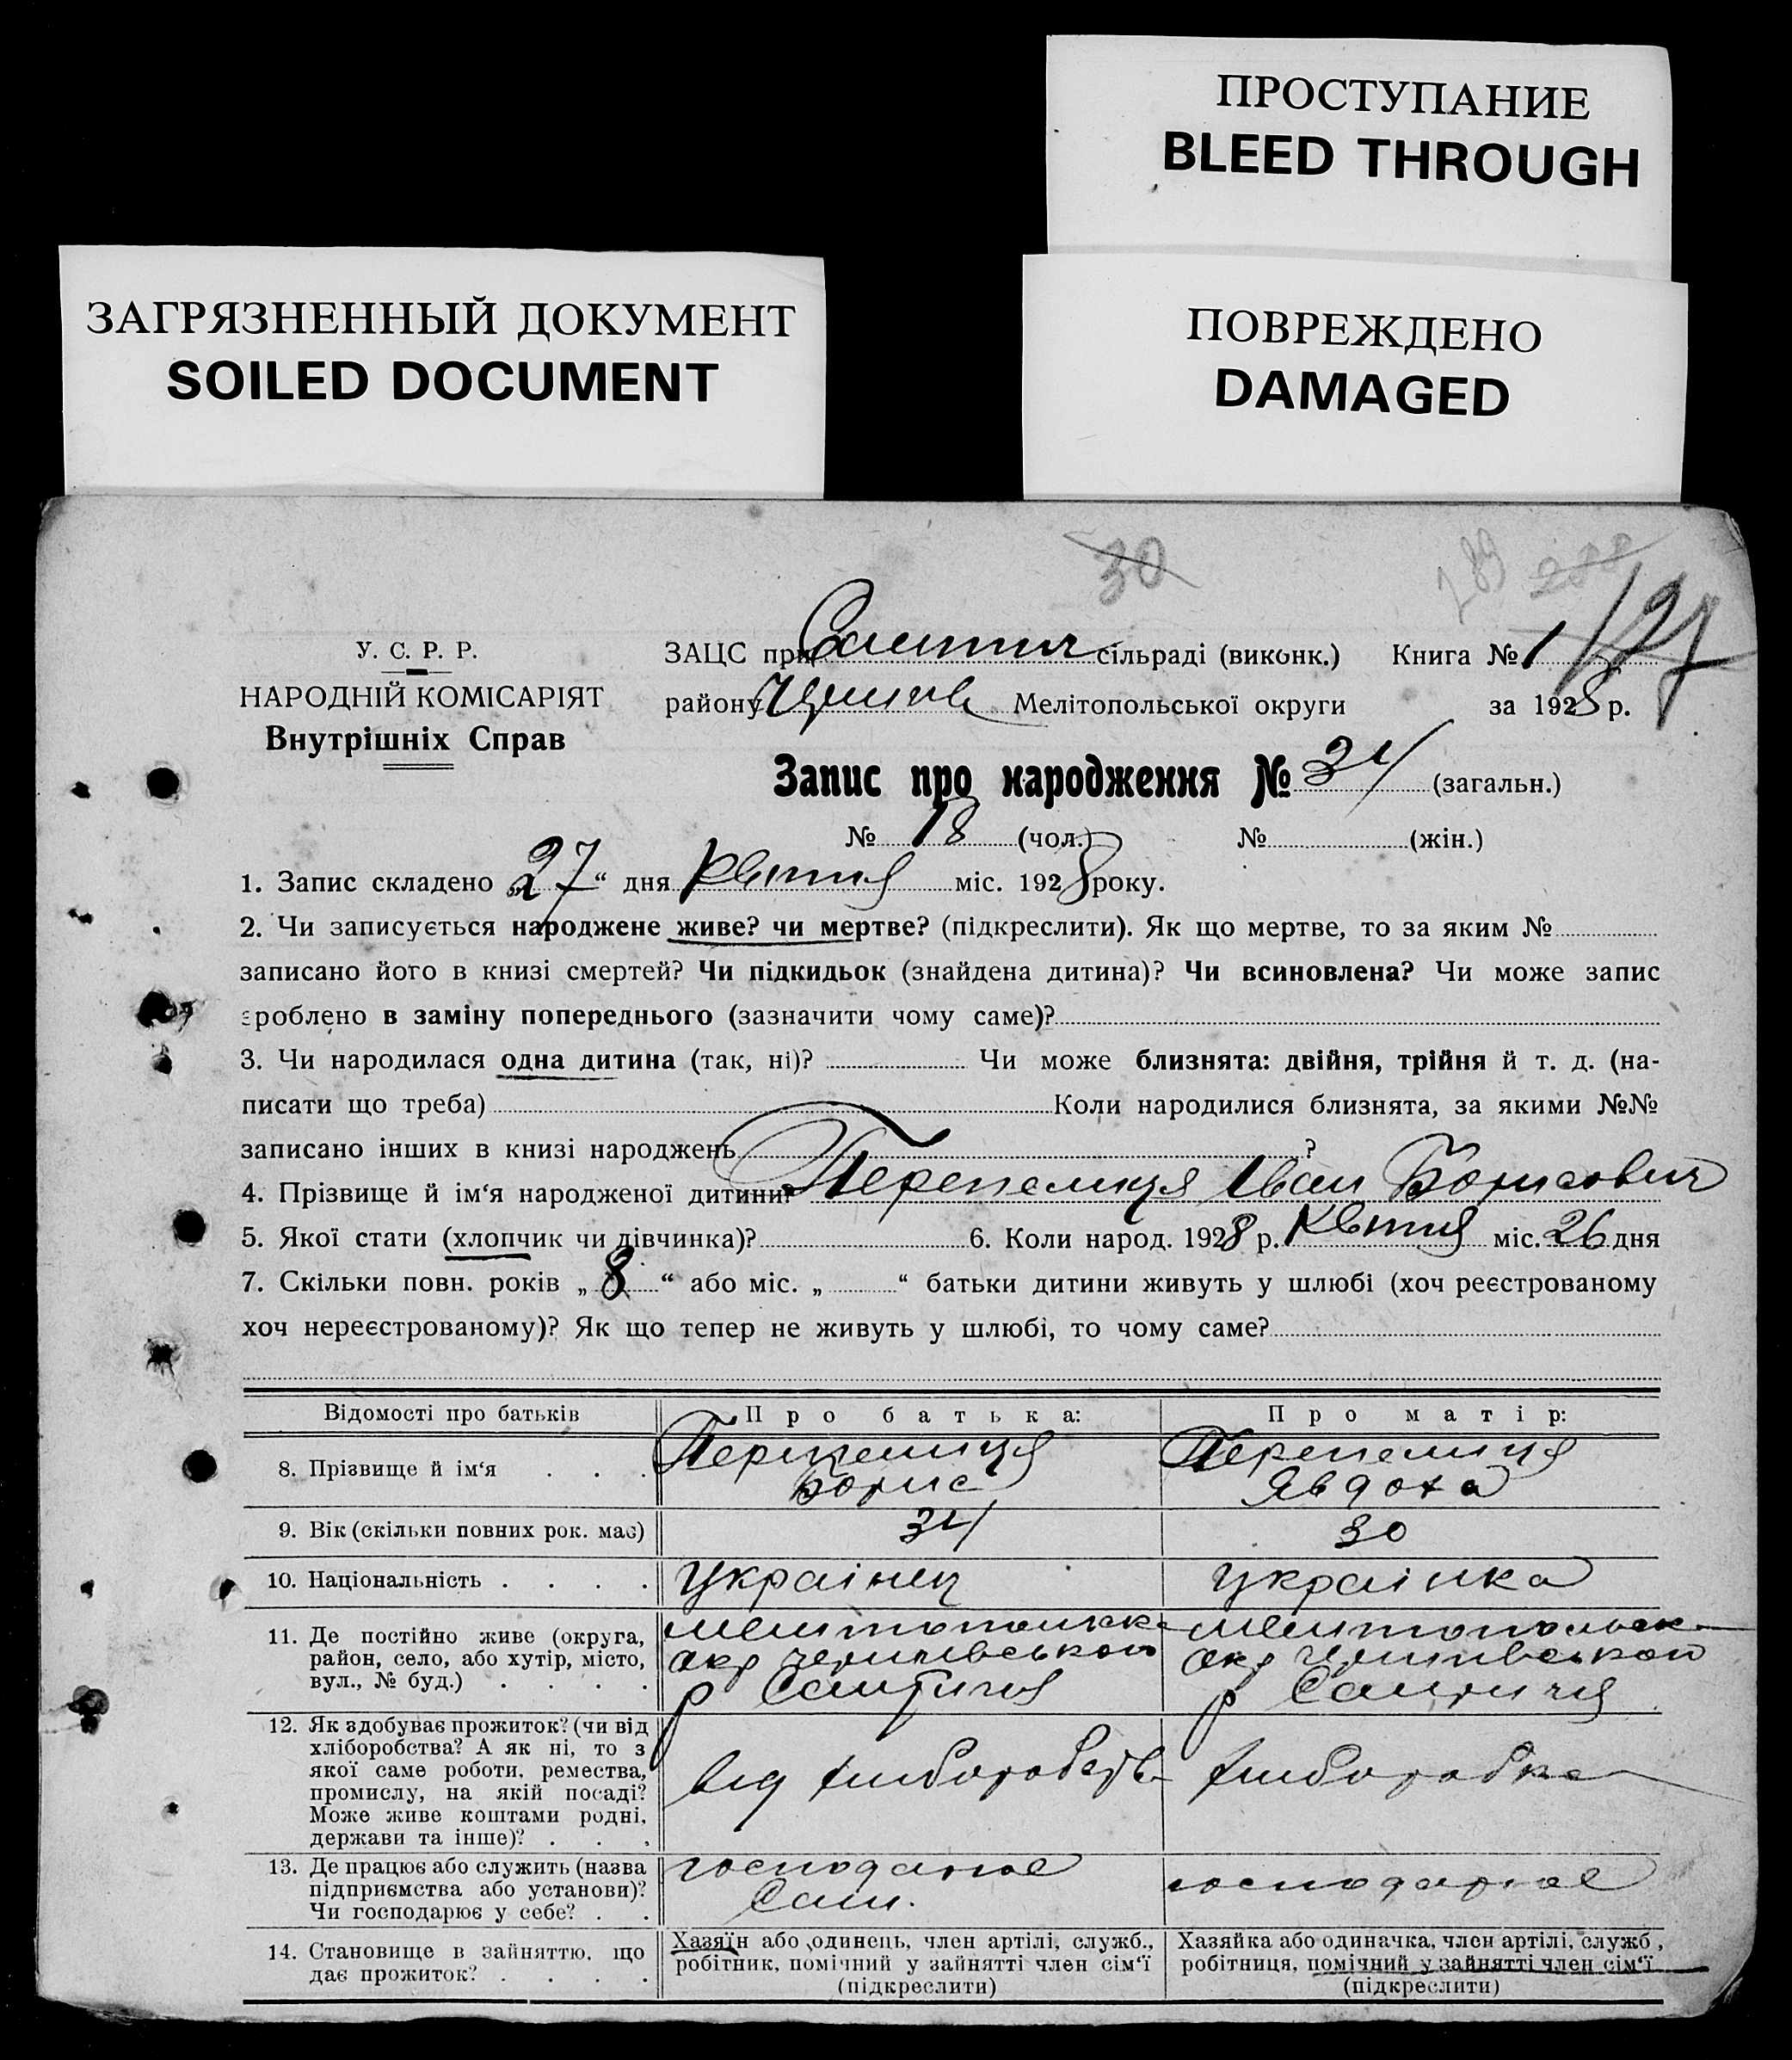 ПРОСТУПАНИЕ
BLEED THROUGH
ЗАГРЯЗНЕННЫЙ ДОКУМЕНТ
SOILED DOCUMENT
ПОВРЕЖДЕНО
DAMAGED
30
127
У. С. Р. Р.
НАРОДНІЙ КОМІСАРІЯТ
Внутрішніх Справ
ЗАЦС при сільраді (виконк.) Книга № 1
району Мелітопольської округи за 1928 р.
Запис про народження № 34 (загальн.)
№ 18 (чол.) № (жін.)
1. Запис складено „27“ дня Квітня міс. 1928 року.
2. Чи записується народжене живе? чи мертве? (підкреслити). Як що мертве, то за яким №
записано його в книзі смертей? Чи підкидьок (знайдена дитина)? Чи всиновлена? Чи може запис
зроблено в заміну попереднього (зазначити чому саме)?
3. Чи народилася одна дитина (так, ні)? Чи може близнята: двійня, трійня й т. д. (на-
писати що треба) Коли народилися близнята, за якими №№
записано інших в книзі народжень ?
4. Прізвище й ім‘я народженої дитини? Перепелиця Іван Борисович
5. Якої стати (хлопчик чи дівчинка)? 6. Коли народ. 1928 р. Квітня міс. 26 дня
7. Скільки повн. років „8“ або міс. „ “ батьки дитини живуть у шлюбі (хоч реєстрованому
хоч нереєстрованому)? Як що тепер не живуть у шлюбі, то чому саме?
Відомості про батьків Про батька: Про матір:
8. Прізвище й ім‘я . . . Перепелиця Борис Перепелиця Явдоха
9. Вік (скільки повних рок. має) 34 30
10. Національність . . . . Українец Українка
11. Де постійно живе (округа,
район, село, або хутір, місто,
вул., № буд.) . . . .
Мелитопольск
окр Чернігівської
р
Мелитопольск
окр Чернігівської
р
12. Як здобуває прожиток? (чи від
хліборобства? А як ні, то з
якої саме роботи, ремества,
промислу, на якій посаді?
Може живе коштами родні,
держави та інше)? . . .
від хліборобств
хліборобка
13. Де працює або служить (назва
підприємства або установи)?
Чи господарює у себе? . .
господарює
Сам.
господарює
14. Становище в зайняттю, що
дає прожиток? . . . .
Хазяїн або одинець, член артілі, служб.,
робітник, помічний у зайнятті член сім‘ї
(підкреслити)
Хазяйка або одиначка, член артілі, служб,
робітниця, помічний у зайнятті член сім‘ї
(підкреслити)